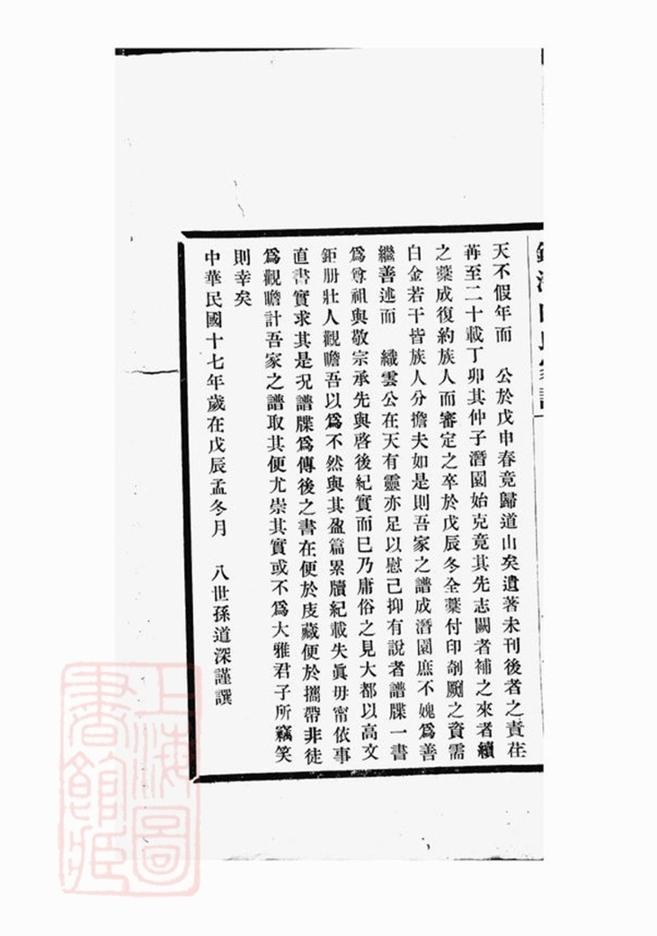 天不假年而　公於戊申春竟歸道山矣遺著未刊後者之責荏
苒至二十載丁卯其仲子潛園始克竟其先志闕者補之來者續
之藁成復約族人而審定之卒於戊辰冬全藁付印剞劂之資需
白金若干皆族人分擔夫如是則吾家之譜成潛園庶不媿爲善
繼善述而　織雲公在天有靈亦足以慰已抑有說者譜牒一書
爲尊祖與敬宗承先與啓後紀實而已乃庸俗之見大都以高文
鉅册壯人觀瞻吾以爲不然與其盈篇累牘紀載失眞毋甯依事
直書實求其是況譜牒爲傳後之書在便於庋藏便於攜帶非徒
爲觀瞻計吾家之譜取其便尤崇其實或不爲大雅君子所竊笑
則幸矣
中華民國十七年歲在戊辰孟冬月　八世孫道深謹譔
上海圖書館藏